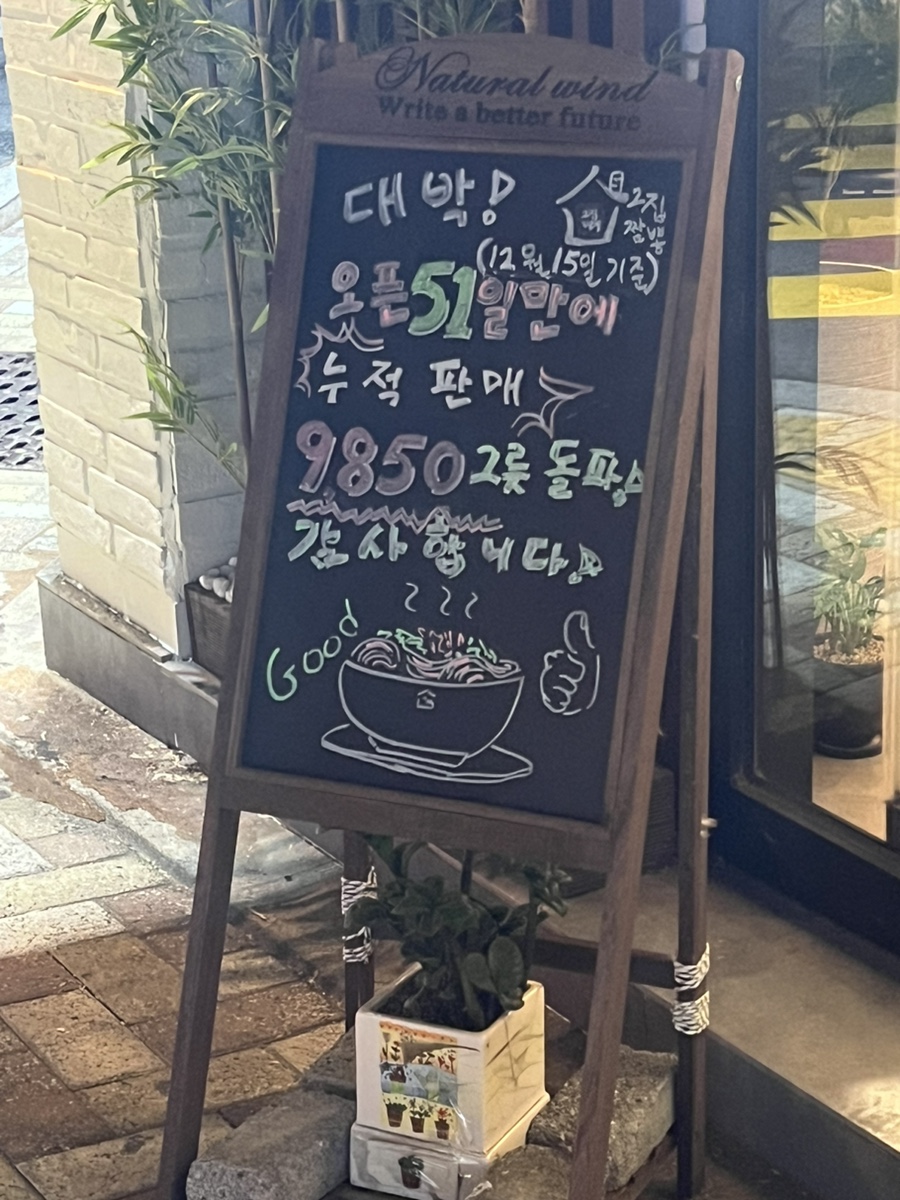 Natural wind
Write a better future
대박!
그집
짬뽕
(12월 15일 기준)
오픈 51일만에
누적 판매
9,850그릇 돌파!
감사합니다!
Good